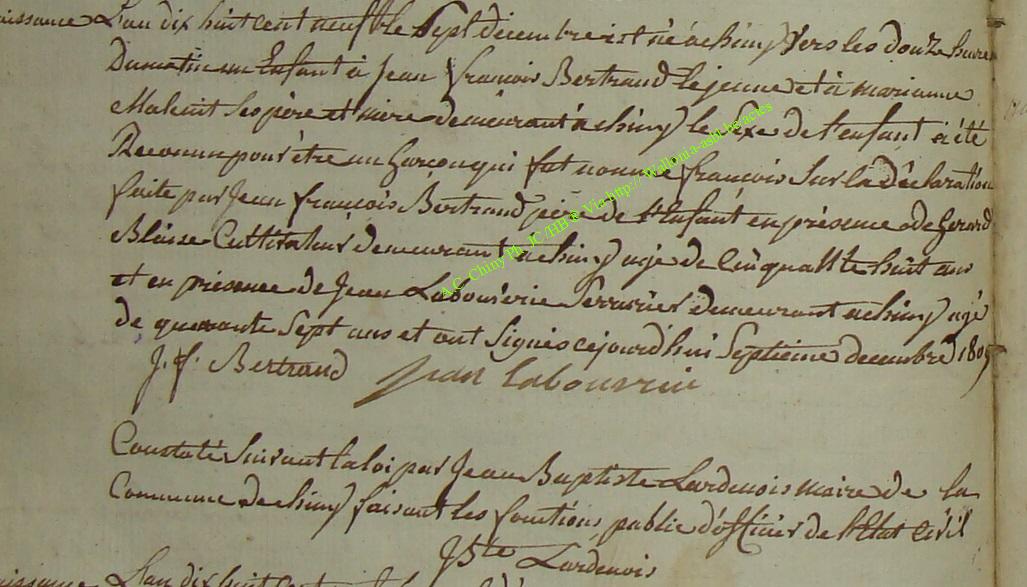 naissance L'an dix huit cent neuf le sept décembre est né à chiny vers les douze heures
Du matin un Enfant à Jean françois Bertrand le jeune et à marianne
Malenit ses père et mère demeurant à chiny le sexe de l'enfant à été
Reconnu pour être un Garçon qui fut nommé françois sur la déclaration
faite par Jean françois Bertrand père de l'Enfant en présence de Gerard
Blaise Cultivateur demeurant a chiny agé de Cinquante huit ans
et en présence de Jean Labouverie Serrurier demeurant a chiny agé
de quarante Sept ans et ont Signés cejourd'hui Septieme decembre 1809
J. f. Bertrand Jean labouverie
A.C. Chiny Ph. JC /HB & Via http:// Wallonia-asbl.be/actes
Constaté Suivant la loi par Jean Baptiste Lardenois maire de la
Commune de chiny faisant les fonctions public d'officier de l'Etat Civil
JBte Lardenois
naissance L'an dix huit cent